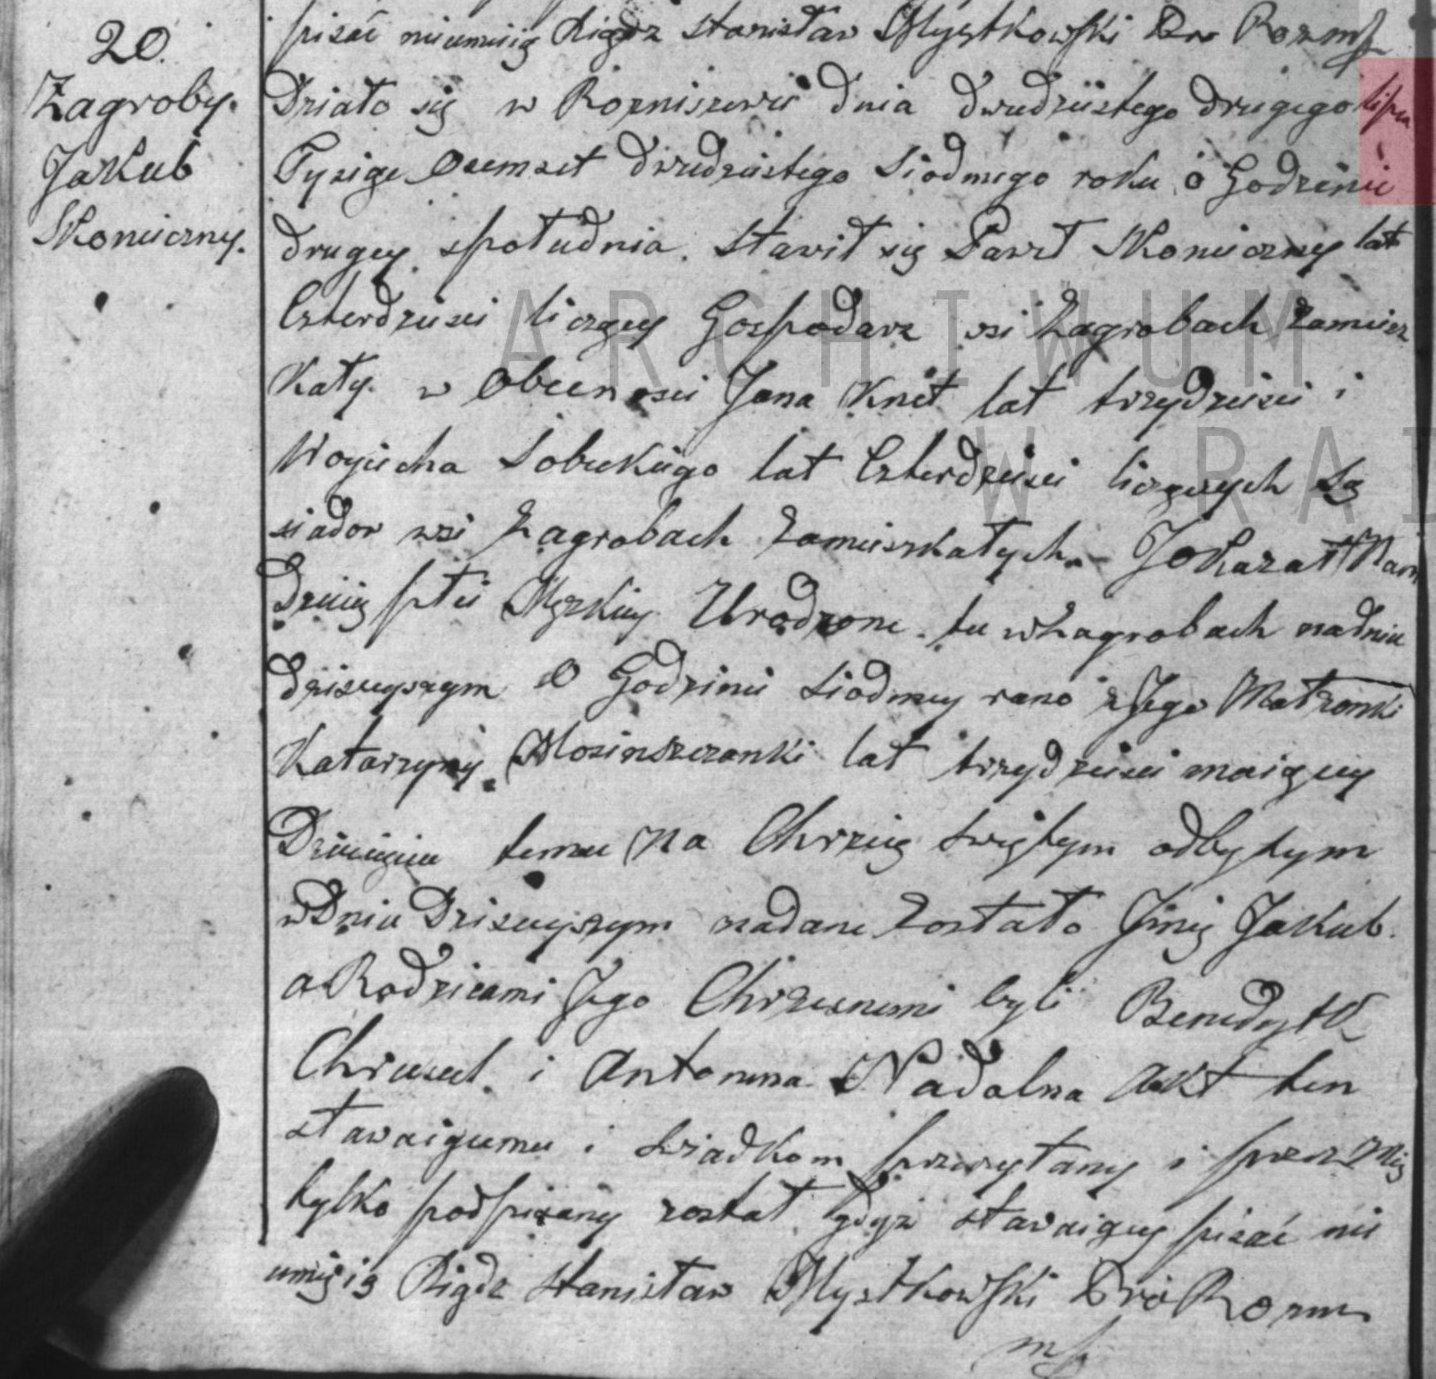 20.
Zagroby.
Jakub
Skonieczny.
pisać nieumieią Xiądz Stanisław Mystkowski
Działo się w Rozniszewie dnia dwudziestego drugiego lipca
Tysiąc Osemset dwudziestego Siodmego roku o Godzinie
drugiey społudnia. Stawił się Paweł Skonieczny lat
Czterdzieści liczący Gospodarz wsi Zagrobach Zamiesz
kały. w Obecności Jana Knet lat trzydzieści i
Woyciecha Sobckiego lat Czterdzieści liczących Są
siadow wsi Zagrobach Zamieszkałych. Jokazał Nam
Dziecię płci Męzkiey Urodzone. tu w Zagrobach na dniu
dzisieyszym O Godzinie Siodmey rano z Jego Małżonki
Katarzyny Mosinszczonki lat trzydzieści maiącey
Dziecięciu temu Na Chrzcię Swiętym odbytym
w Dniu Dzisieyszym nadane Zostało Jmię Jakub.
a Rodzicami Jego Chrzesnemi byli Benedykt
i Antonina Nadolna Akt ten
stawaiącemu i Swiadkom przeczytany i przez Nię
tylko podpisany został gdyż stawaiący pisać nie
umieią Xiądz Stanisław Mystkowski